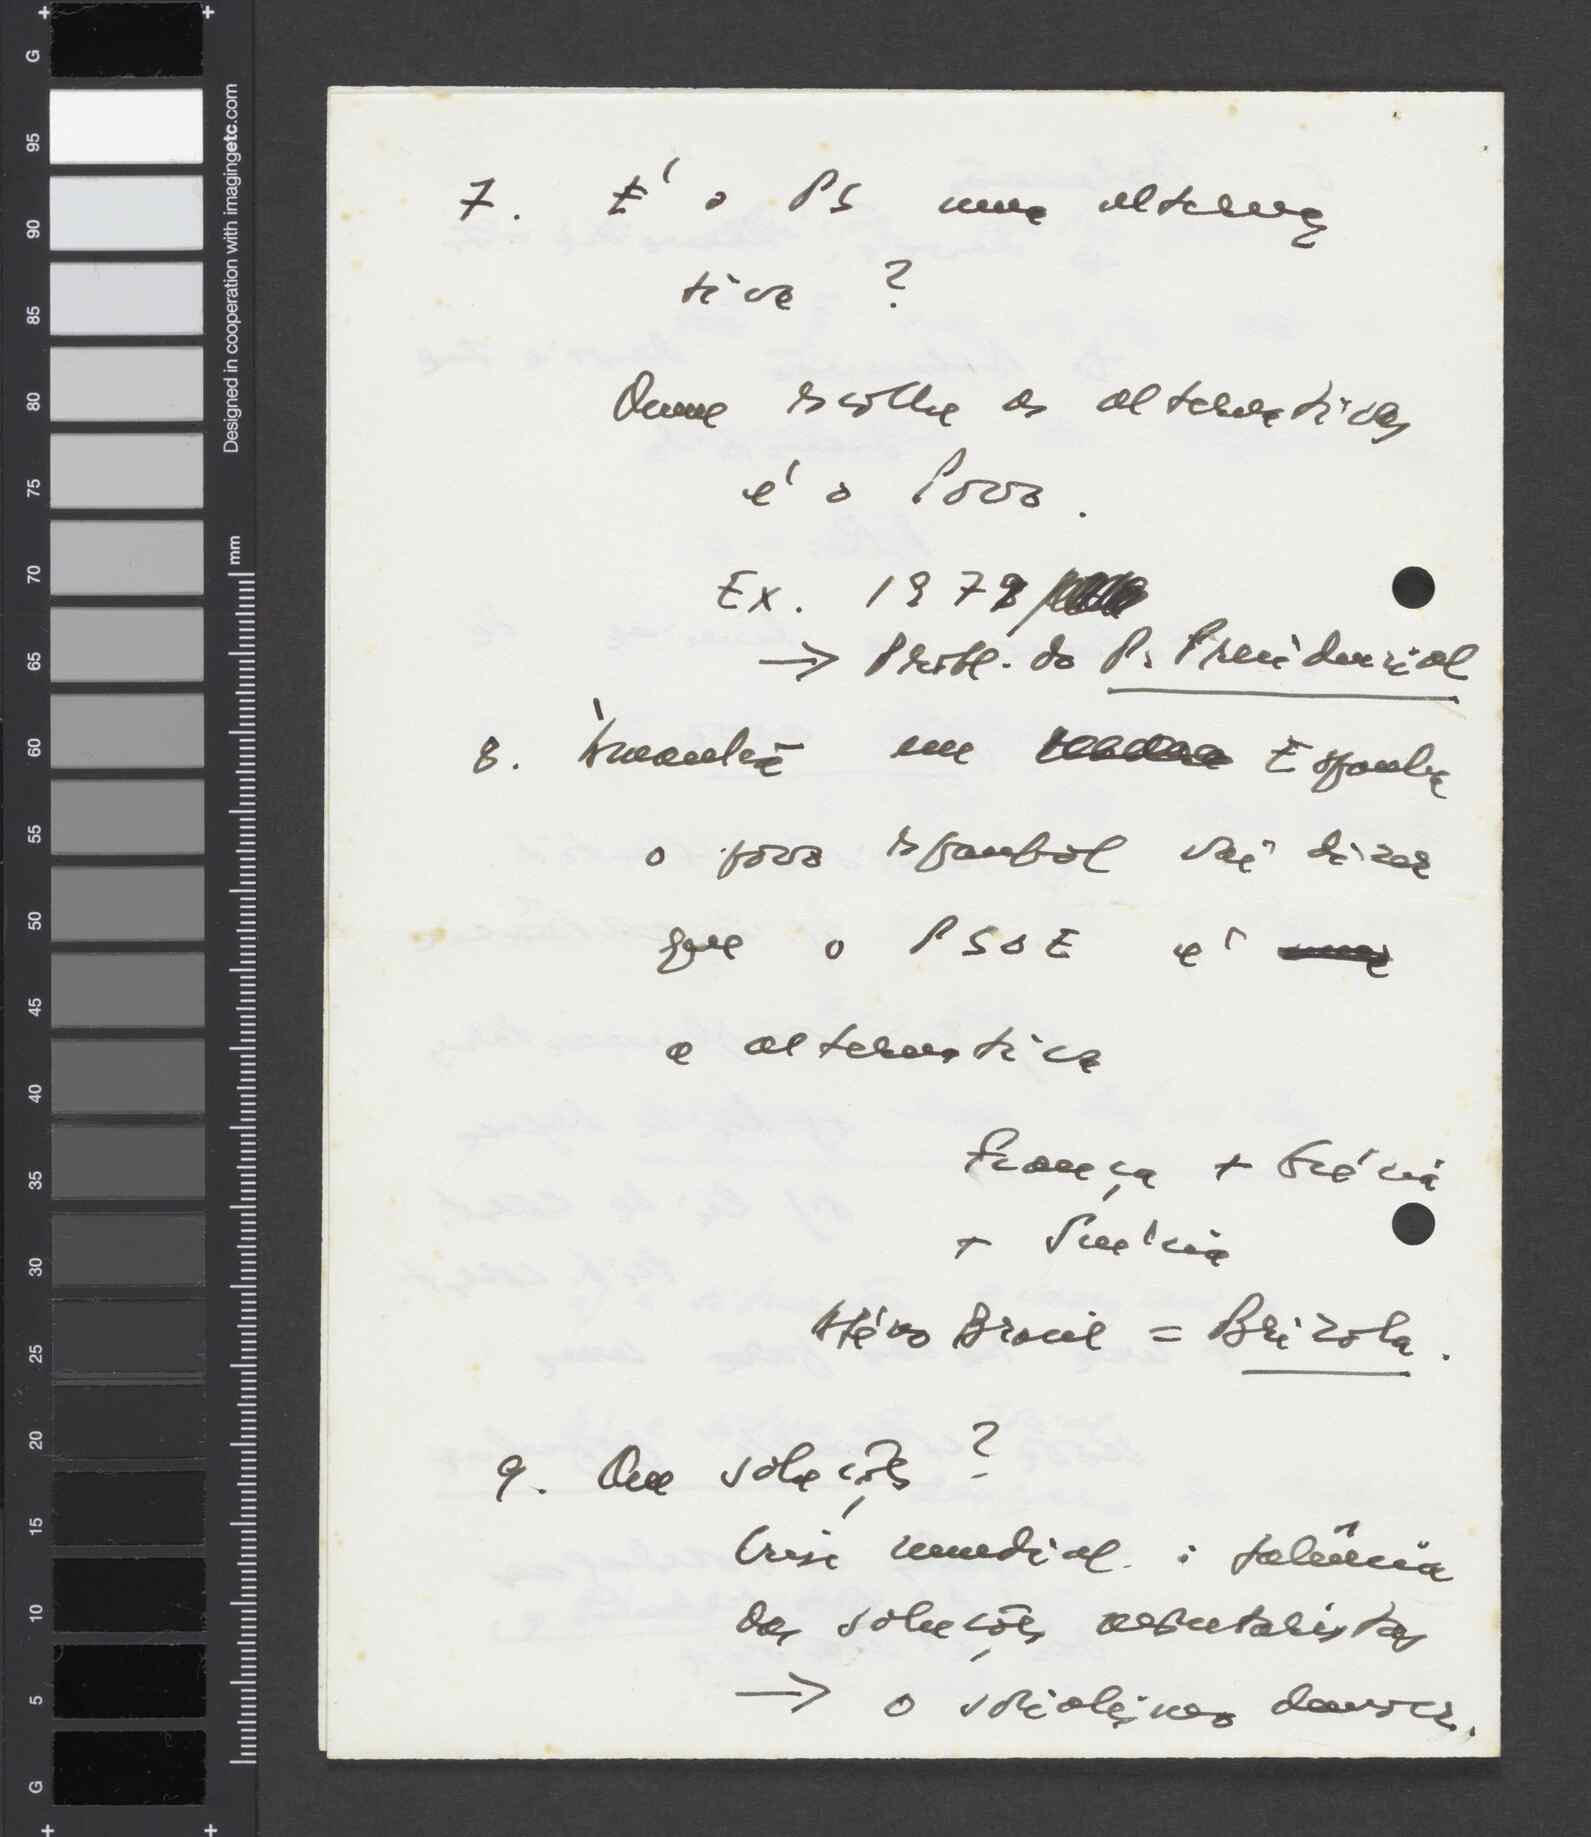 G
95
90
85
80
75
70
65
60
55
50
45
40
35
30
25
20
15
10
5
G
Designed in cooperation with imagingetc.com
mm
7. É o PS uma alterna
tiva ?
Quem escolhe as alternativas
é o Povo.
Ex. 1979
→ Probl. do P. Presidencial
8. Àmanhã em Espanha
o povo espanhol vai dizer
que o PSOE é
a alternativa
França + Grécia
+ Suécia
Até no Brasil = Brizola.
9. Que soluções ?
Crise mundial : falência
das soluções monetaristas
→ o socialismo democr.